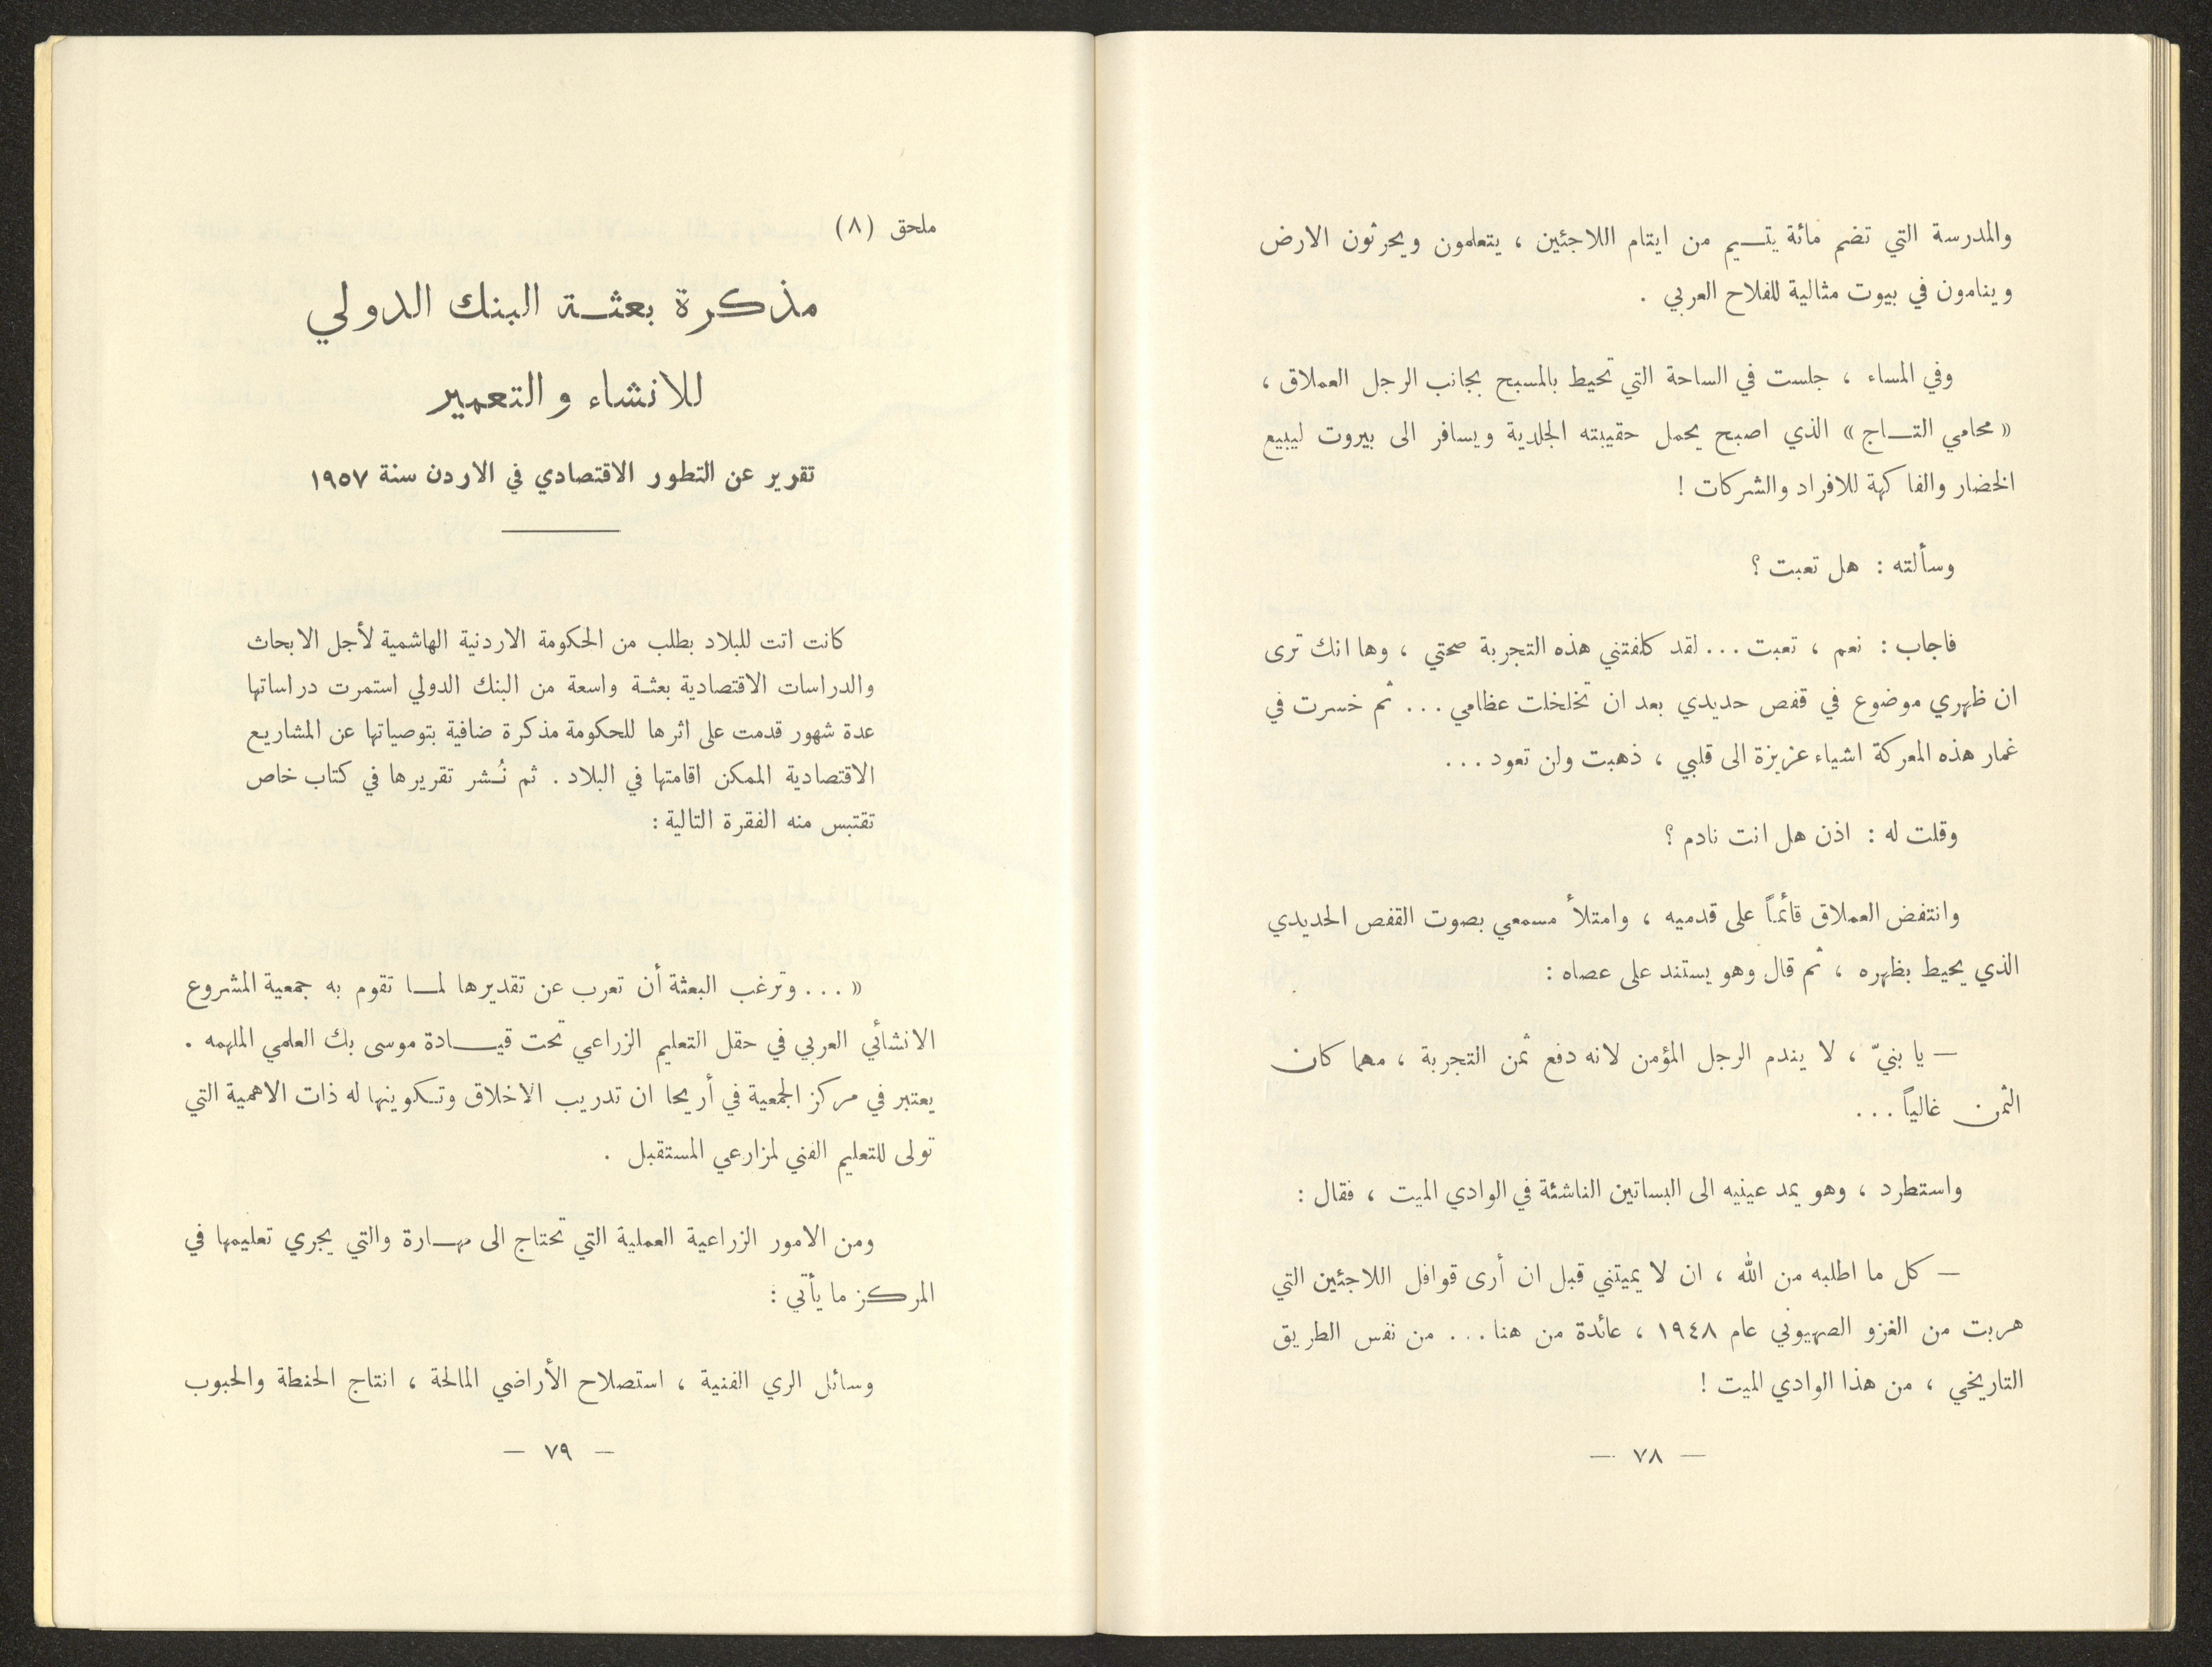 والمدرسة التي تضم مائة يتـــيم من ايتام اللاجئين ، يتعلمون ويحرثون الارض
وينامون في بيوت مثالية للفلاح العربي .
وفي المساء ، جلست في الساحة التي تحيط بالمسبح بجانب الرجل العملاق ،
« محامي التـــاج » الذي اصبح يحمل حقيبته الجلدية ويسافر الى بيروت ليبيع
الخضار والفاكهة للافراد والشركات !
وسألته : هل تعبت ؟
فاجاب : نعم ، تعبت ... لقد كلفتني هذه التجربة صحتي ، وها انك ترى
ان ظهري موضوع في قفص حديدي بعد ان تخلخلت عظامي ... ثم خسرت في
غمار هذه المعركة اشياء عزيزة الى قلبي ، ذهبت ولن تعود ...
وقلت له : اذن هل انت نادم ؟
وانتفض العملاق قائماً على قدميه ، وامتلأ مسمعي بصوت القفص الحديدي
الذي يحيط بظهره ، ثم قال وهو يستند على عصاه :
— يا بنيّ ، لا يندم الرجل المؤمن لانه دفع ثمن التجربة ، مهما كان
الثمن غالياً ...
واستطرد ، وهو يمد عينيه الى البساتين الناشئة في الوادي الميت ، فقال :
— كل ما اطلبه من الله ، ان لا يميتني قبل ان أرى قوافل اللاجئين التي
هربت من الغزو الصهيوني عام ١٩٤٨ ، عائدة من هنا ... من نفس الطريق
التاريخي ، من هذا الوادي الميت !
— ٧٨ —
ملحق (٨)
مذكرة بعثـــة البنك الدولي
للانشاء والتعمير
تقرير عن التطور الاقتصادي في الاردن سنة ١٩٥٧
كانت اتت للبلاد بطلب من الحكومة الاردنية الهاشمية لأجل الابحاث
والدراسات الاقتصادية بعثـة واسعة من البنك الدولي استمرت دراساتها
عدة شهور قدمت على اثرها للحكومة مذكرة ضافية بتوصياتها عن المشاريع
الاقتصادية الممكن اقامتها في البلاد . ثم نُشر تقريرها في كتاب خاص
تقتبس منه الفقرة التالية :
« ... وترغب البعثة أن تعرب عن تقديرها لمـــا تقوم به جمعية المشروع
الانشائي العربي في حقل التعليم الزراعي تحت قيـــادة موسى بك العلمي الملهمه .
يعتبر في مركز الجمعية في أريحا ان تدريب الاخلاق وتكوينها له ذات الاهمية التي
تولى للتعليم الفني لمزارعي المستقبل .
ومن الامور الزراعية العملية التي تحتاج الى مهـــارة والتي يجري تعليمها في
المركز ما يأتي :
وسائل الري الفنية ، استصلاح الأراضي المالحة ، انتاج الحنطة والحبوب
— ٧٩ —